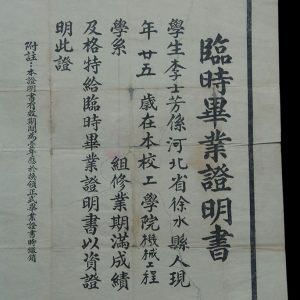 臨時畢業證明書
學生李士芳係河北省徐水縣人現
年廿五歲在本校工學院機械工程
學系 組修業期滿成績
及格特給臨時畢業證明書以資證
明此證
附註：本證明書有效期間為壹年應於換領正式畢業證書時繳銷